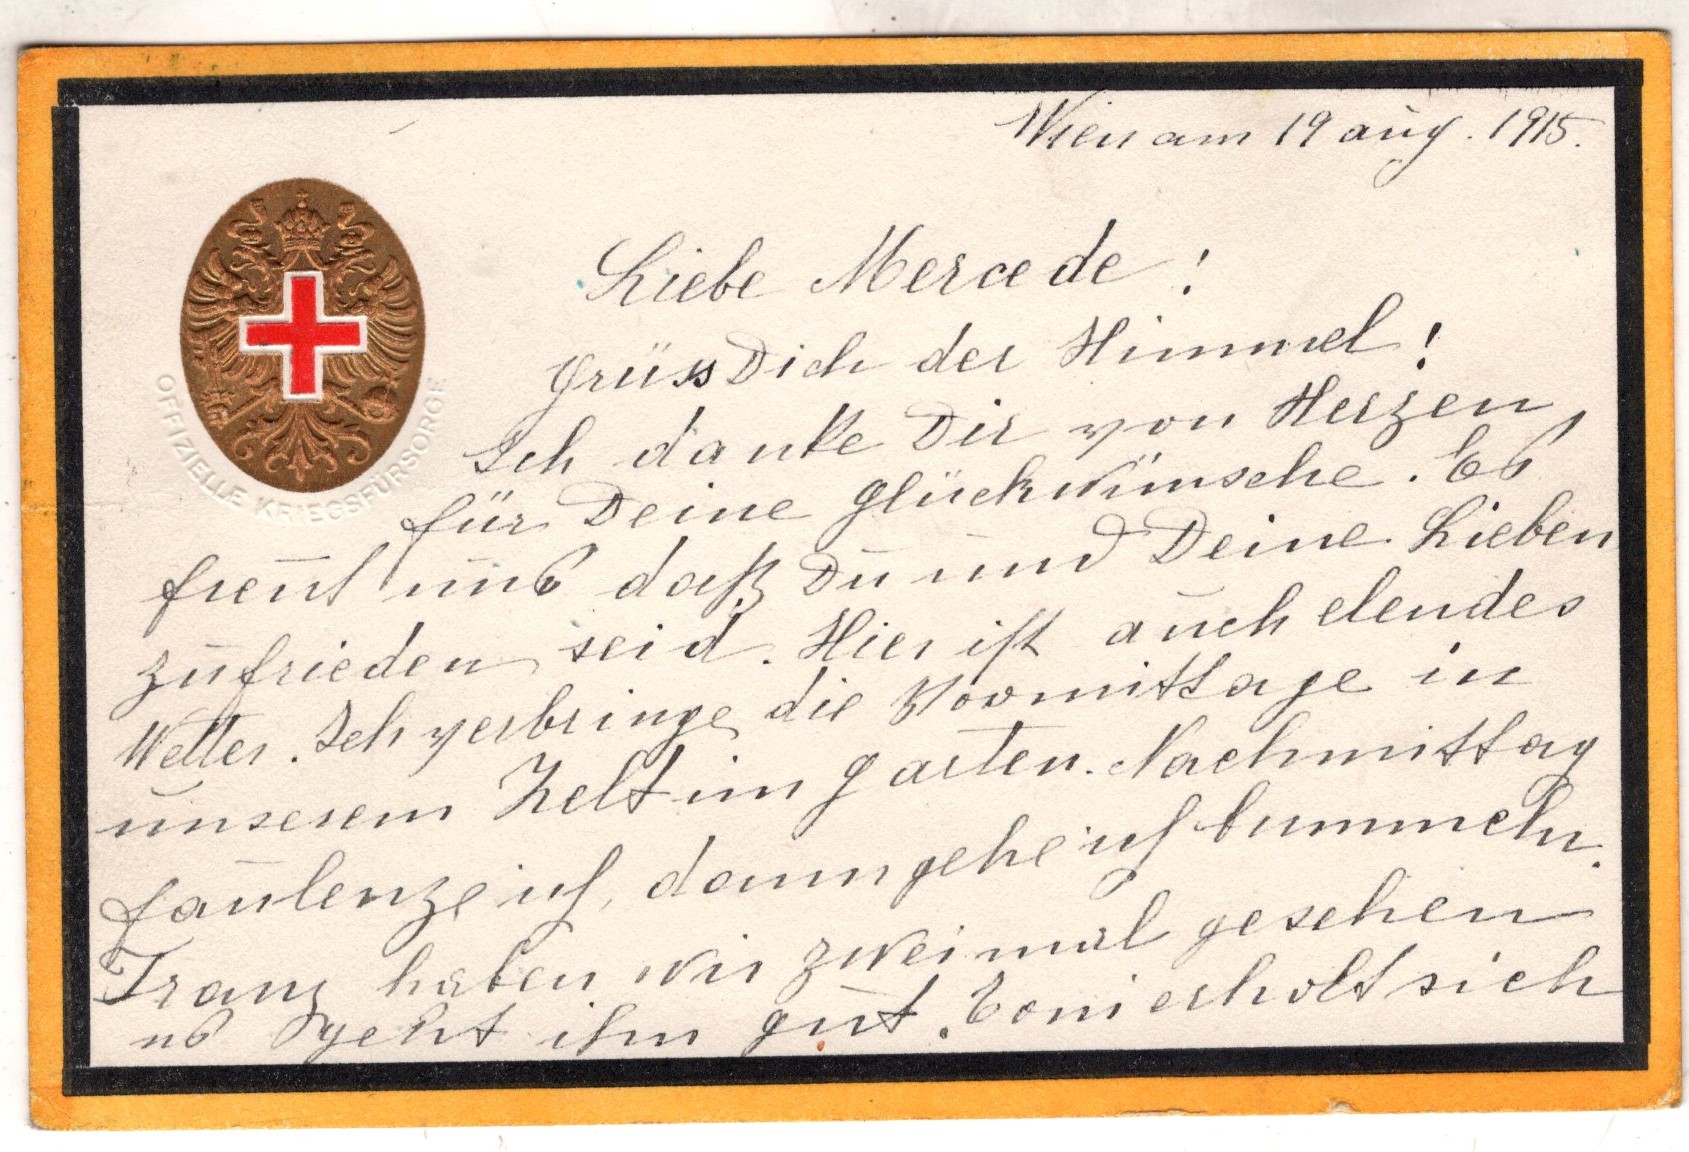 Wien am 19 aug. 1915.
Liebe Mercede!
Grüss Dich der Himmel!
Ich danke Dir von Herzen,
für Deine Glückwünsche. Es
freut uns daß Du und Deine Lieben
zufrieden seid. Hier ist auch elendes
Wetter. Ich verbringe die Vormittage in
unserem Zelt im Garten. Nachmittag
faulenze ich, dann gehe ich bummeln.
Franz haben wir zweimal gesehen
es geht ihm gut. Toni erholt sich
OFFIZIELLE KRIEGSFÜRSORGE